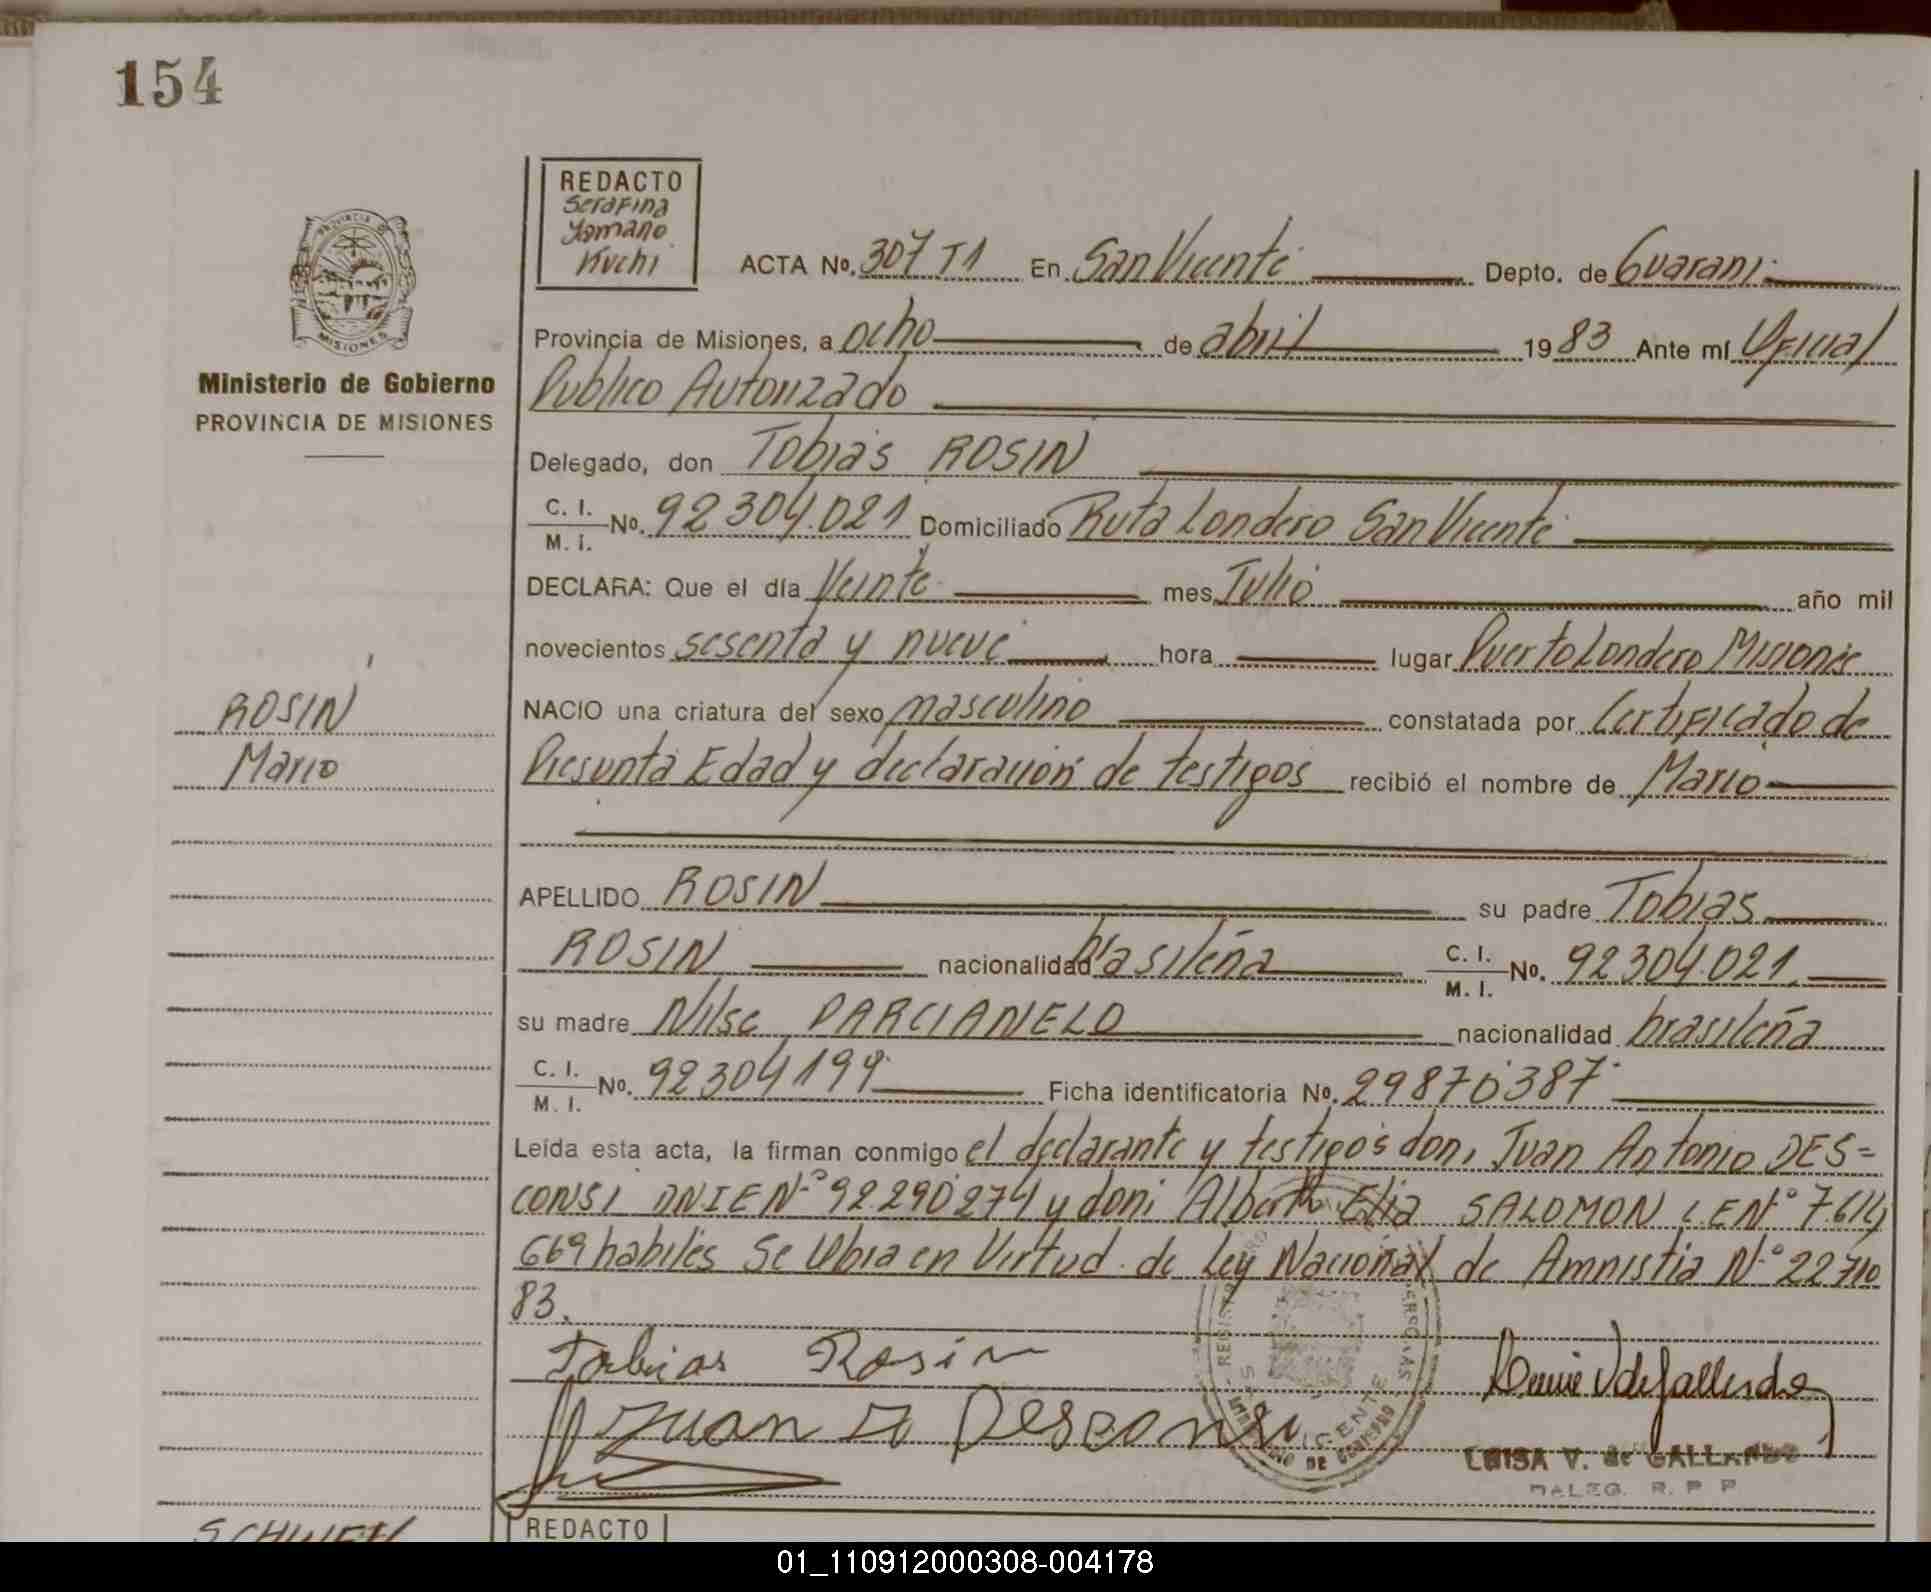 154
REDACTO
Serafina
Yamano
Kuchi
PROVINCIA DE
MISIONES
Ministerio de Gobierno
PROVINCIA DE MISIONES
ACTA No. 307 T1 En San Vicente Depto. de Guarani
Provincia de Misiones, a ocho de abril 1983 Ante mí Oficial
Publico Autorizado
Delegado, don Tobias ROSIN
C. I. / M. I. No. 92304.021 Domiciliado Ruta Londero San Vicente
DECLARA: Que el día Veinte mes Julio año mil
novecientos sesenta y nueve hora lugar Puerto Londero Misiones
NACIO una criatura del sexo masculino constatada por Certificado de
Presunta Edad y declaración de testigos recibió el nombre de Mario
ROSIN
Mario
APELLIDO ROSIN su padre Tobias
ROSIN nacionalidad brasileña C. I. / M. I. No. 92304.021
su madre Nilse PARCIANELO nacionalidad brasileña
C. I. / M. I. No. 92304199 Ficha identificatoria No. 29870387
Leída esta acta, la firman conmigo el declarante y testigos don, Juan Antonio DES=
CONSI DNIEN° 92.290274 y don Alberto Elia SALOMON LEN° 7.614
669 habiles Se Labra en Virtud de Ley Nacional de Amnistia N° 22710
83.
Tobias Rosin
Juan Desconsi
VICENTE
LUISA V. de GALLARDO
DALEG. R. P. P
REDACTO
01_110912000308-004178